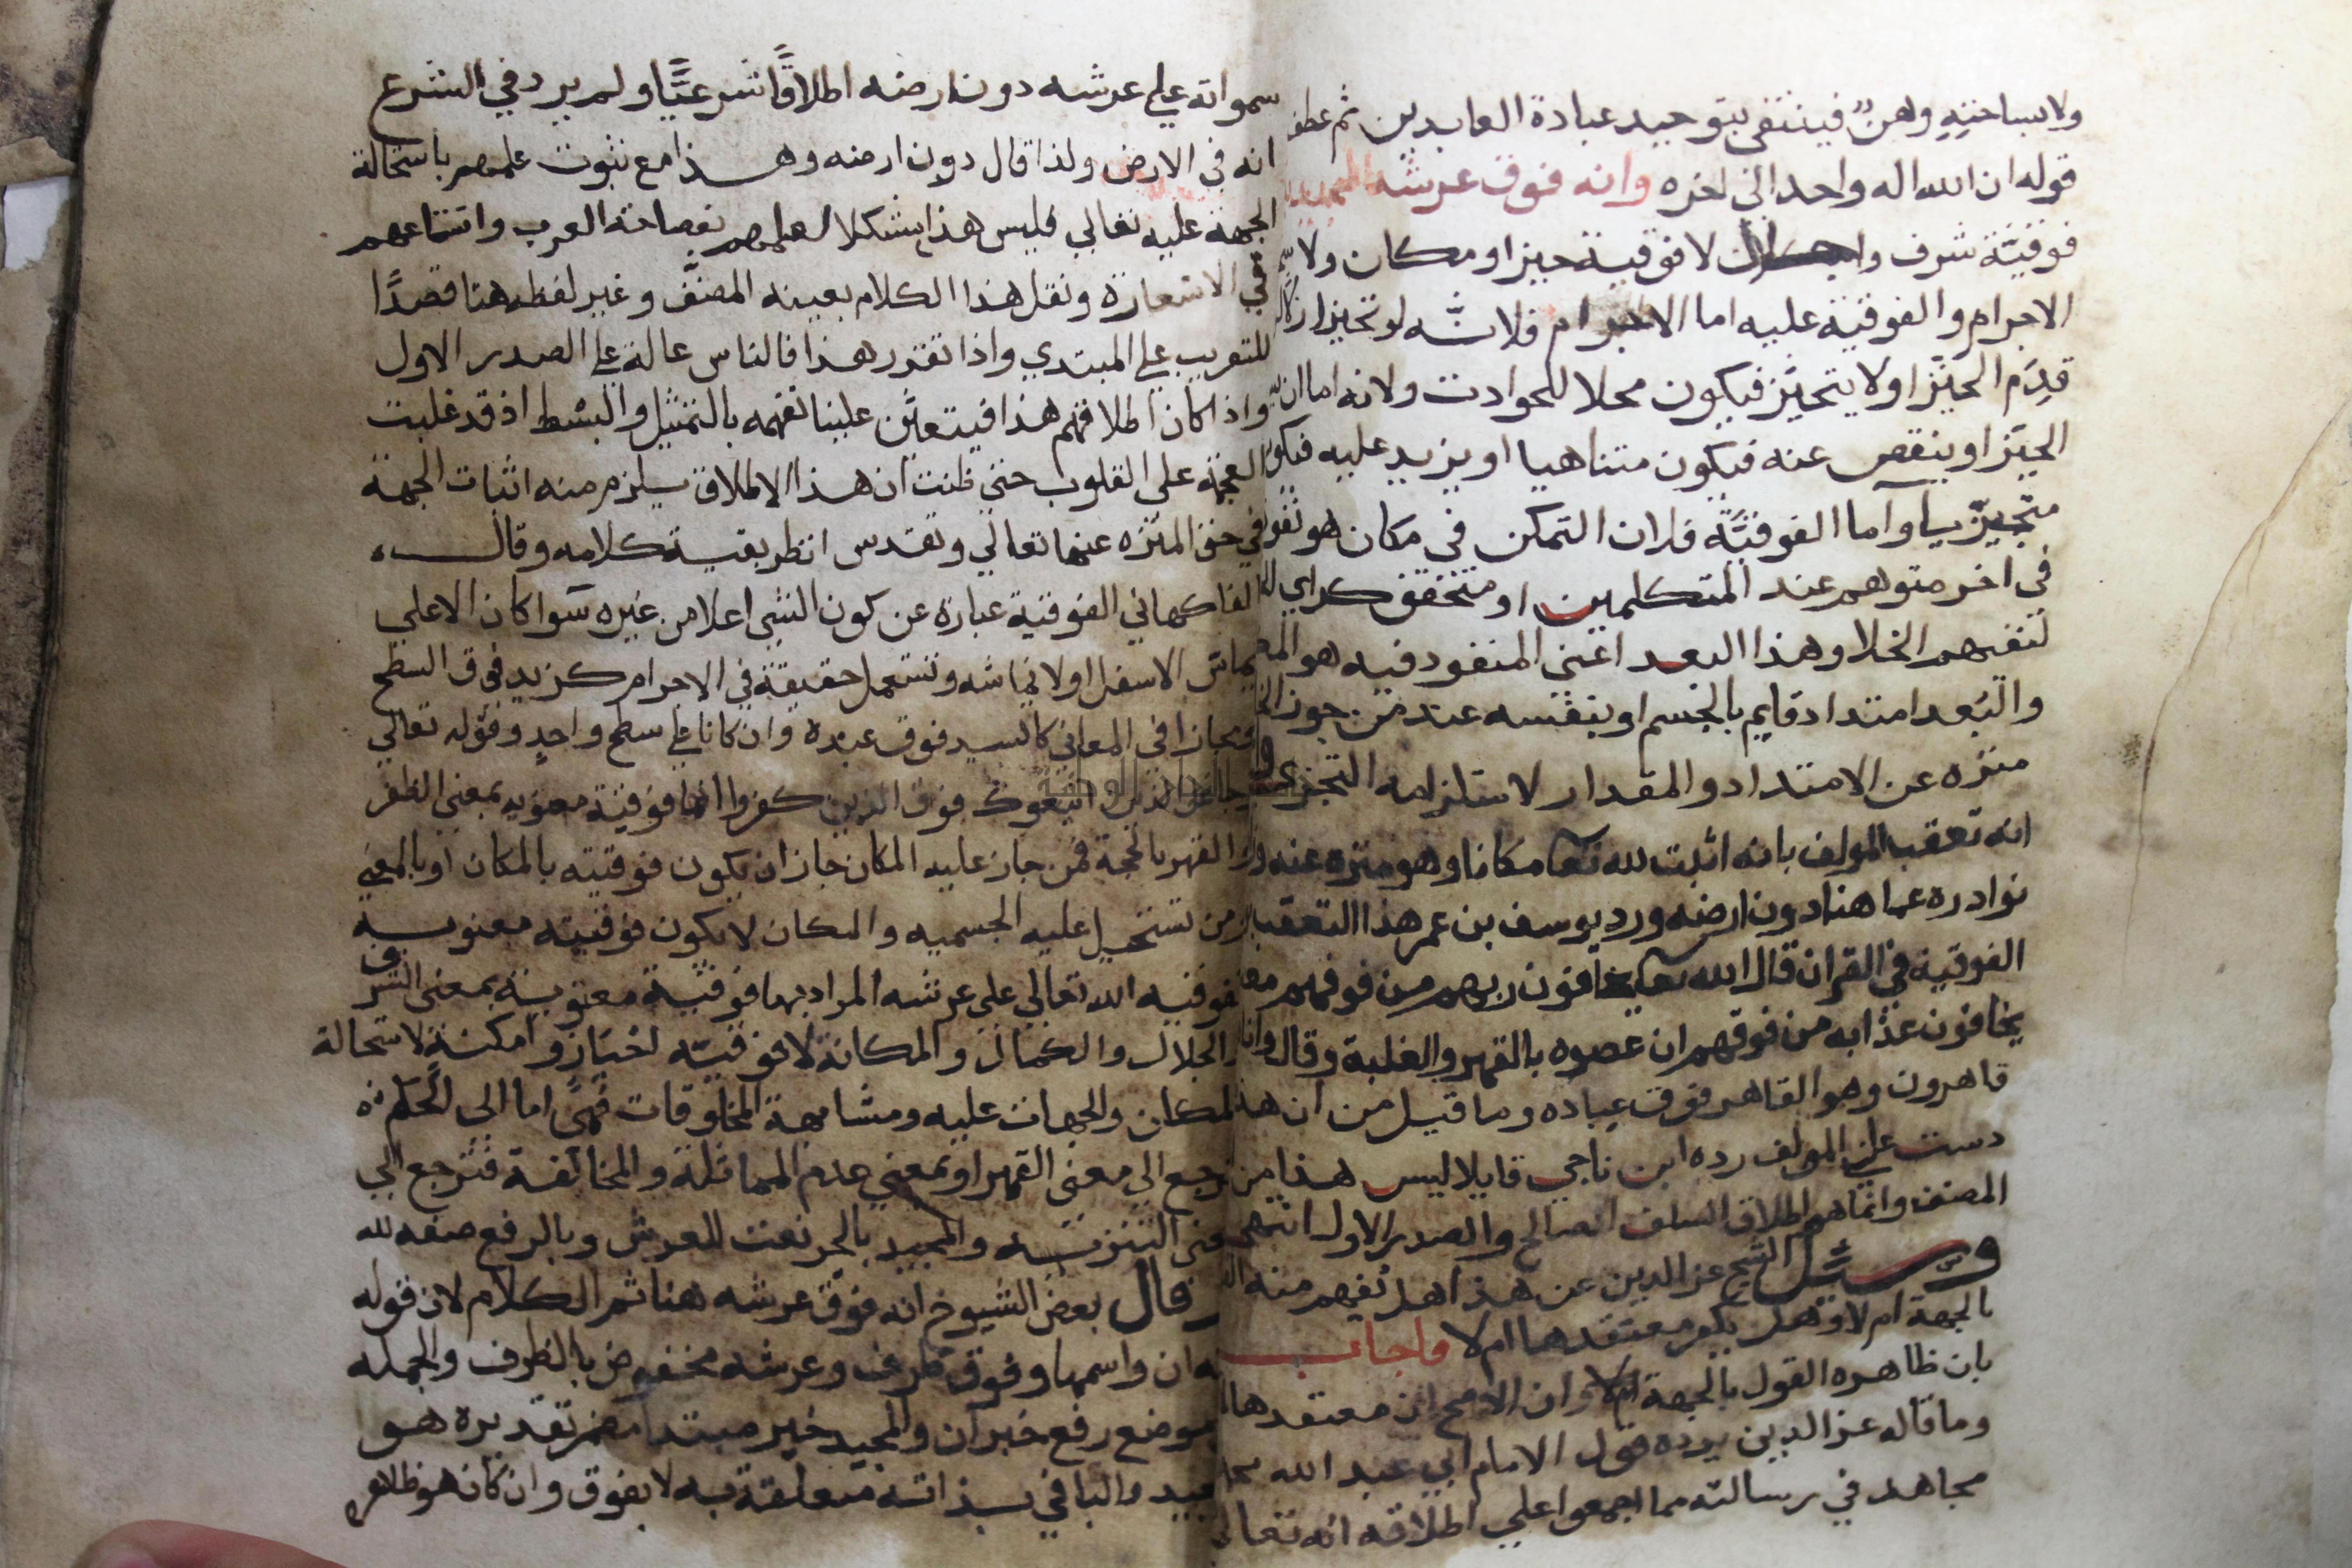 ولا بساحته وهن فينتفي بتوحيد عبادة العابدين ثم عطف
قوله ان الله اله واحد الى اخره وانه فوق عرشه المجيد
فوقية شرف لا فوقية حيز او مكان ولا
الاجرام والفوقية عليه اما الاجرام فلانه لو تحيز
قدم الحيز او لا يتحيز فيكون محلا للحوادث ولانه اما ان
الحيز او ينقص عنه فيكون متناهيا او يزيد عليه فيكون
متجيزيا واما الفوقية فلان التمكن في مكان هو نفوذ
في اخر متوهم عند المتكلمين او متحقق كراي
لنفيهم الخلا وهذا البعد اعني المنفود فيه هو
والبعد امتداد قايم بالجسم او بنفسه عند من جوز
منزه عن الامتداد والمقدار لاستلزامه التجزي
انه تعقب المولف بانه اثبت لله تعا مكانا وهو منزه عنه
نوادره عما هنا دون ارضه ورد يوسف بن عمر هذا التعقب
الفوقية في القران قال الله تعا يخافون ربهم من فوقهم
يخافون عذابه من فوقهم ان عصوه بالقهر والغلبة وقال وانا
قاهرون وهو القاهر فوق عباده وما قيل من ان هذا
دست على المولف رده ابن ناجي قايلا ليس هذا من
المصنف وانما هو اطلاق السلف الصالح والصدر الاول انتهى
وسئل الشيخ عز الدين عن هذا هل يفهم منه
بالجهة ام لا وهل يكفر معتقدها ام لا فاجاب
بان ظاهره القول بالجهة وان الاصح ان معتقدها
وما قاله عز الدين يرده قول الامام ابي عبد الله
مجاهد في رسالته مما اجمعوا على اطلاقه انه تعالى
سمواته على عرشه دون ارضه اطلاقا شرعيا ولم يرد في الشرع
انه في الارض ولذا قال دون ارضه وهذا مع ثبوت علمهم باستحالة
الجهة عليه تعالي فليس هذا مشكلا لعلمهم بفصاحة العرب واتساعهم
في الاستعارة ونقل هذا الكلام بعينه المصنف وغير لفظه هنا قصدا
للتقريب على المبتدي واذا تقرر هذا فالناس عالة على الصدر الاول
واذا كان اطلاقهم هذا فيتعين علينا تفهمه بالتمثيل والبسط اذ قد غلبت
العجمة على القلوب حتى ظنت ان هذا الاطلاق يلزم منه اثبات الجهة
في حق المنزه عنها تعالي وتقدس انظر بقية كلامه وقال
الفاكهاني الفوقية عبارة عن كون الشي اعلا من غيره سوا كان الاعلى
يماس الاسفل او لا يماسه وتستعمل حقيقة في الاجرام كزيد فوق السطح
ومجازا في المعاني كالسيد فوق عبده وان كانا على سطح واحد وقوله تعالي
وجاعل الذين اتبعوك فوق الذين كفروا انها فوقية معنوية بمعنى الظفر
والقهر بالحجة فمن جاز عليه المكان جاز ان يكون فوقيته بالمكان او بالمعني
ومن تستحيل عليه الجسميه والمكان لا يكون فوقيته معنوية
ففوقية الله تعالي على عرشه المراد بها فوقية معنوية بمعنى الشرف
والجلال والكمال والمكانة لا فوقية احياز وامكنة لاستحالة
المكان والجهات عليه ومشابهة المخلوقات فهي اما الى الحكم
ترجع الى معنى القهر او بمعنى عدم المماثلة والمخالفة فترجع الي
معنى التنزيه والمجيد بالجر نعت للعرش وبالرفع صفه لله
وقال بعض الشيوخ انه فوق عرشه هنا تم الكلام لان قوله
انه ان واسمها وفوق ظرف وعرشه مخفوض بالظرف والجمله
موضع رفع خبر ان والمجيد خبر مبتدا مضمر تقديره هو
المجيد والبا في بذاته متعلقة به لا بفوق وان كان هو ظاهر